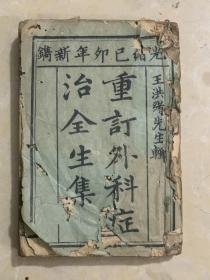 光緒已卯年新鐫
王洪緒先生輯
重訂外科症
治全生集